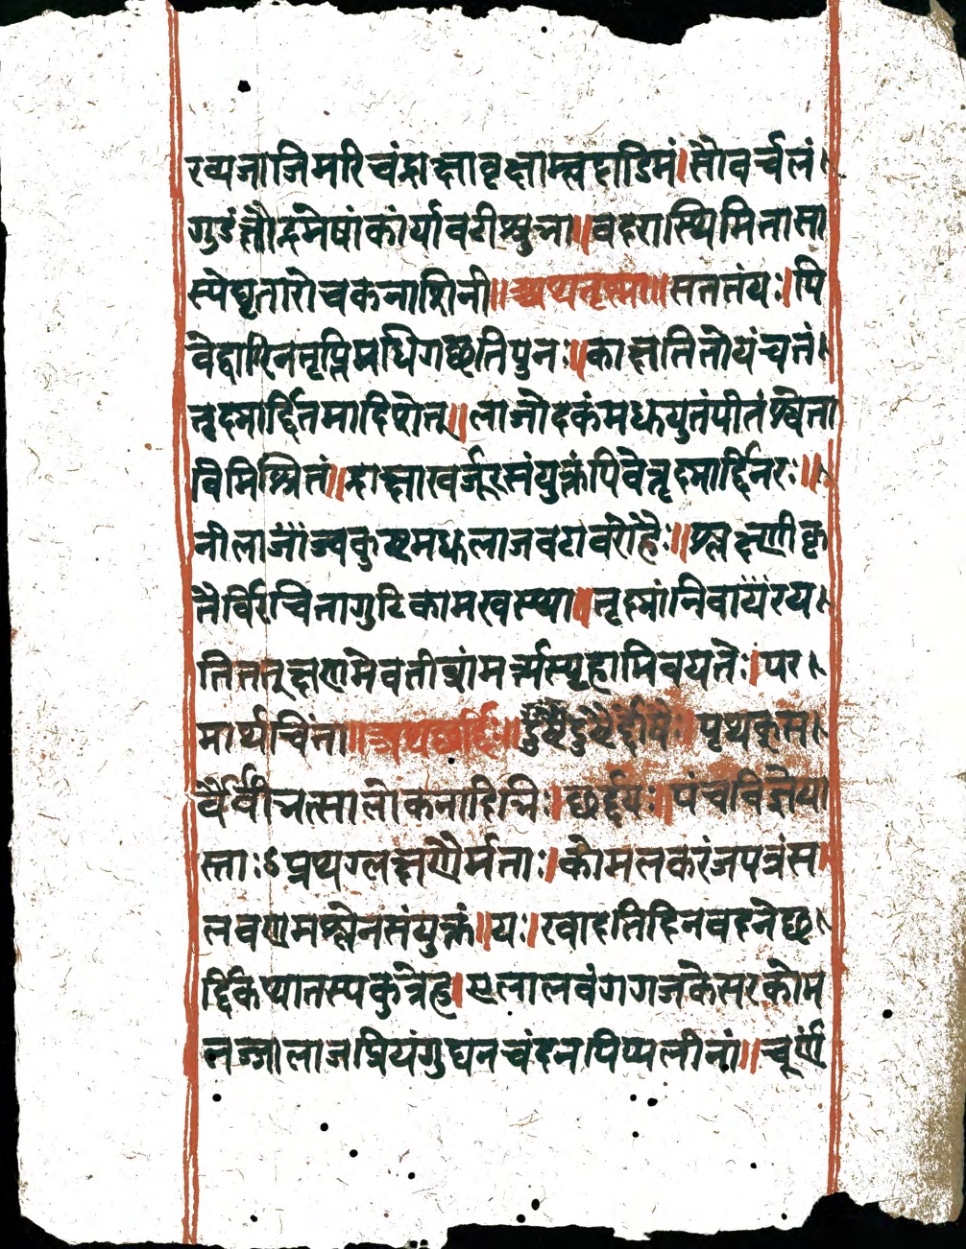 रव्यजाजिमरिचंद्राक्षावृक्षाम्लदाडिमं। सौवर्चलं
गुडंक्षौद्रमेषांकार्यावटीश्रुना॥ वदरास्थिमितासा
स्येघृतारोचकनाशिनी॥ अथतृष्णा॥ सततंयः। पि
वेद्वारिनतृप्तिमधिगच्छतिपुनः॥ काक्षतितोयंचतं
तृदमार्द्दितमादिशेत्॥ लाजोदकंमधुयुतंपीतंश्वेता
विमिश्रितं॥ द्राक्षाखर्जूरसंयुक्तंपिवेत्तृदमार्द्दिनरः॥
नीलाजांज्वकुष्टमधुलाजवटावरोहैः॥ श्लक्ष्णीकृ
तैर्विरचितागुटिकामखस्था॥ तृष्णांनिवारयय
तितत्क्षणमेवतीव्रांमर्त्यस्पृहामिवयतेः। पर
मार्थचिंता॥ अथछर्द्दि॥ दुष्टैदुष्टैर्द्दोषैः॥ पृथक्स
र्वैर्वीभत्सालोकनादिभिः। छर्द्दयः॥ पंचविज्ञेया
स्ताः ऽ प्रथग्लक्षणैर्मताः। कोमलकरंजपत्रंस
लवणमम्लेनसंयुक्तं॥ यः। खादतिदिनवदनेछ
र्द्दिकथातस्यकुत्रेह। एलालवंगगजकेसरकोम
लज्जालाजप्रियंगुघनचंदनपिप्पलीनां॥ चूर्ण